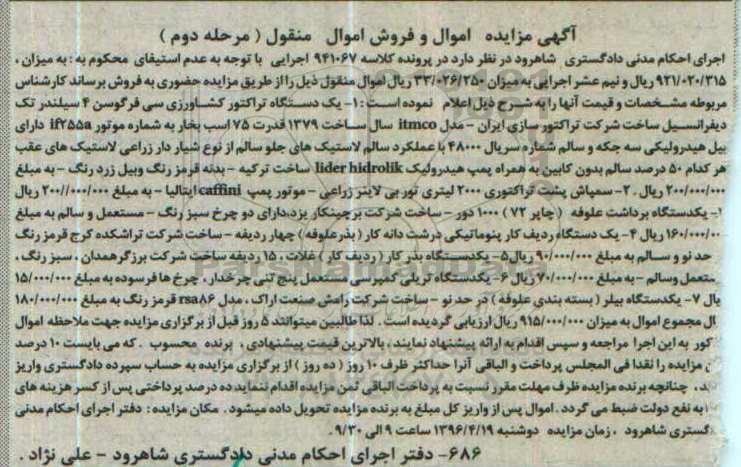 آگهی مزایده اموال و فروش اموال منقول ( مرحله دوم )
اجرای احکام مدنی دادگستری شاهرود در نظر دارد در پرونده کلاسه ۹۴۱۰۶۷ اجرایی با توجه به عدم استیفای محکوم به : به میزان ،
۹۲۱/۰۲۰/۳۱۵ ریال و نیم عشر اجرایی به میزان ۳۳/۰۲۶/۲۵۰ ریال اموال منقول ذیل را از طریق مزایده حضوری به فروش برساند کارشناس
مربوطه مشخصات و قیمت آنها را به شرح ذیل اعلام نموده است : ۱- یک دستگاه تراکتور کشاورزی سی فرگوسن ۴ سیلندر تک
دیفرانسیل ساخت شرکت تراکتور سازی ایران - مدل itmco سال ساخت ۱۳۷۹ قدرت ۷۵ اسب بخار به شماره موتور if۲۵۵a دارای
بیل هیدرولیکی سه جکه و سالم شماره سریال ۴۸۰۰۰ با عملکرد سالم لاستیک های جلو سالم از نوع شیار دار زراعی لاستیک های عقب
هر کدام ۵۰ درصد سالم بدون کابین به همراه پمپ هیدرولیک lider hidrolik ساخت ترکیه - بدنه قرمز رنگ وبیل زرد رنگ - به مبلغ
۲۰۰/۰۰۰/۰۰۰ ریال . ۲- سمپاش پشت تراکتوری ۲۰۰۰ لیتری توربی لاینر زراعی - موتور پمپ caffini ایتالیا - به مبلغ ۲۰۰//۰۰۰/۰۰۰ ریال
یکدستگاه برداشت علوفه ( چاپر ۷۲ ) ۱۰۰۰ دور - ساخت شرکت برچینکار یزد،دارای دو چرخ سبز رنگ - مستعمل و سالم به مبلغ
۱۶۰/۰۰۰/۰۰ ریال ۴- یک دستگاه ردیف کار پنوماتیکی درشت دانه کار ( بذر علوفه ) چهار ردیفه - ساخت شرکت تراشکده کرج قرمز رنگ
حد نو و سالم به مبلغ ۹۰/۰۰۰/۰۰۰ ریال ۵- یکدستگاه بذر کار ( ردیف کار ) غلات ، ۱۵ ردیفه ساخت شرکت برزگر همدان ، سبز رنگ ،
ستعمل وسالم - به مبلغ ۷۰/۰۰۰/۰۰۰ ریال ۶- یکدستگاه تریلی کمپرسی مستعمل پنج تنی چرخدار ، چرخ ها فرسوده به مبلغ ۱۵/۰۰۰/
یال ۷- یکدستگاه بیلر ( بسته بندی علوفه ) در حد نو - ساخت شرکت رامش صنعت اراک ، مدل rsa۸۶ قرمز رنگ به مبلغ ۱۸۰/۰۰۰/۰۰۰
ال مجموع اموال به میزان ۹۱۵/۰۰۰/۰۰۰ ریال ارزیابی گردیده است . لذا طالبین میتوانند ۵ روز قبل از برگزاری مزایده جهت ملاحظه اموال
کور به این اجرا مراجعه و سپس اقدام به ارائه پیشنهاد نمایند ، بالاترین قیمت پیشنهادی ، برنده محسوب . که می بایست ۱۰ درصد
ن مزایده را نقدا فی المجلس پرداخت و الباقی آنرا حداکثر ظرف ۱۰ روز ( ده روز ) از برگزاری مزایده به حساب سپرده دادگستری واریز
ند ، چنانچه برنده مزایده ظرف مهلت مقرر نسبت به پرداخت الباقی ثمن مزایده اقدام ننماید ده درصد پرداختی پس از کسر هزینه های
به نفع دولت ضبط می گردد . اموال پس از واریز کل مبلغ به برنده مزایده تحویل داده میشود . مکان مزایده : دفتر اجرای احکام مدنی
گستری شاهرود ، زمان مزایده دوشنبه ۱۳۹۶/۴/۱۹ ساعت ۹ الی ۹/۳۰ .
۶۸۶- دفتر اجرای احکام مدنی دادگستری شاهرود - علی نژاد .